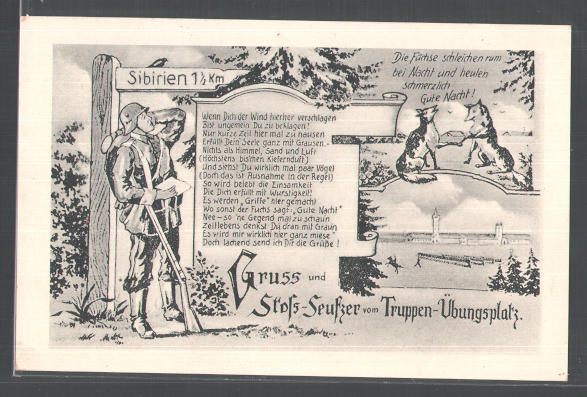 Sibirien 1½ Km
Die Füchse schleichen rum
bei Nacht und heulen
schmerzlich
Gute Nacht!
Wenn Dich der Wind hierher verschlagen
Bist ungemein Du zu beklagen!
Nur kurze Zeit hier mal zu hausen
Erfüllt Dein Seele ganz mit Grausen.-
Nichts als Himmel, Sand und Luft
(Höchstens bischen Kiefernduft)
Und siehst Du wirklich mal paar Vögel
(Doch das ist Ausnahme in der Regel)
So wird belebt die Einsamkeit
Die Dich erfüllt mit Wurstigkeit!
Es werden „Griffe" hier gemacht
Wo sonst der Fuchs sagt: „Gute Nacht"
Nee – so 'ne Gegend mal zu schaun
Zeitlebens denkst Du dran mit Graun
Es wird mir wirklich hier ganz miese
Doch lachend send ich Dir die Grüße!
Gruss und
Stoß-Seufzer vom Truppen-Übungsplatz.